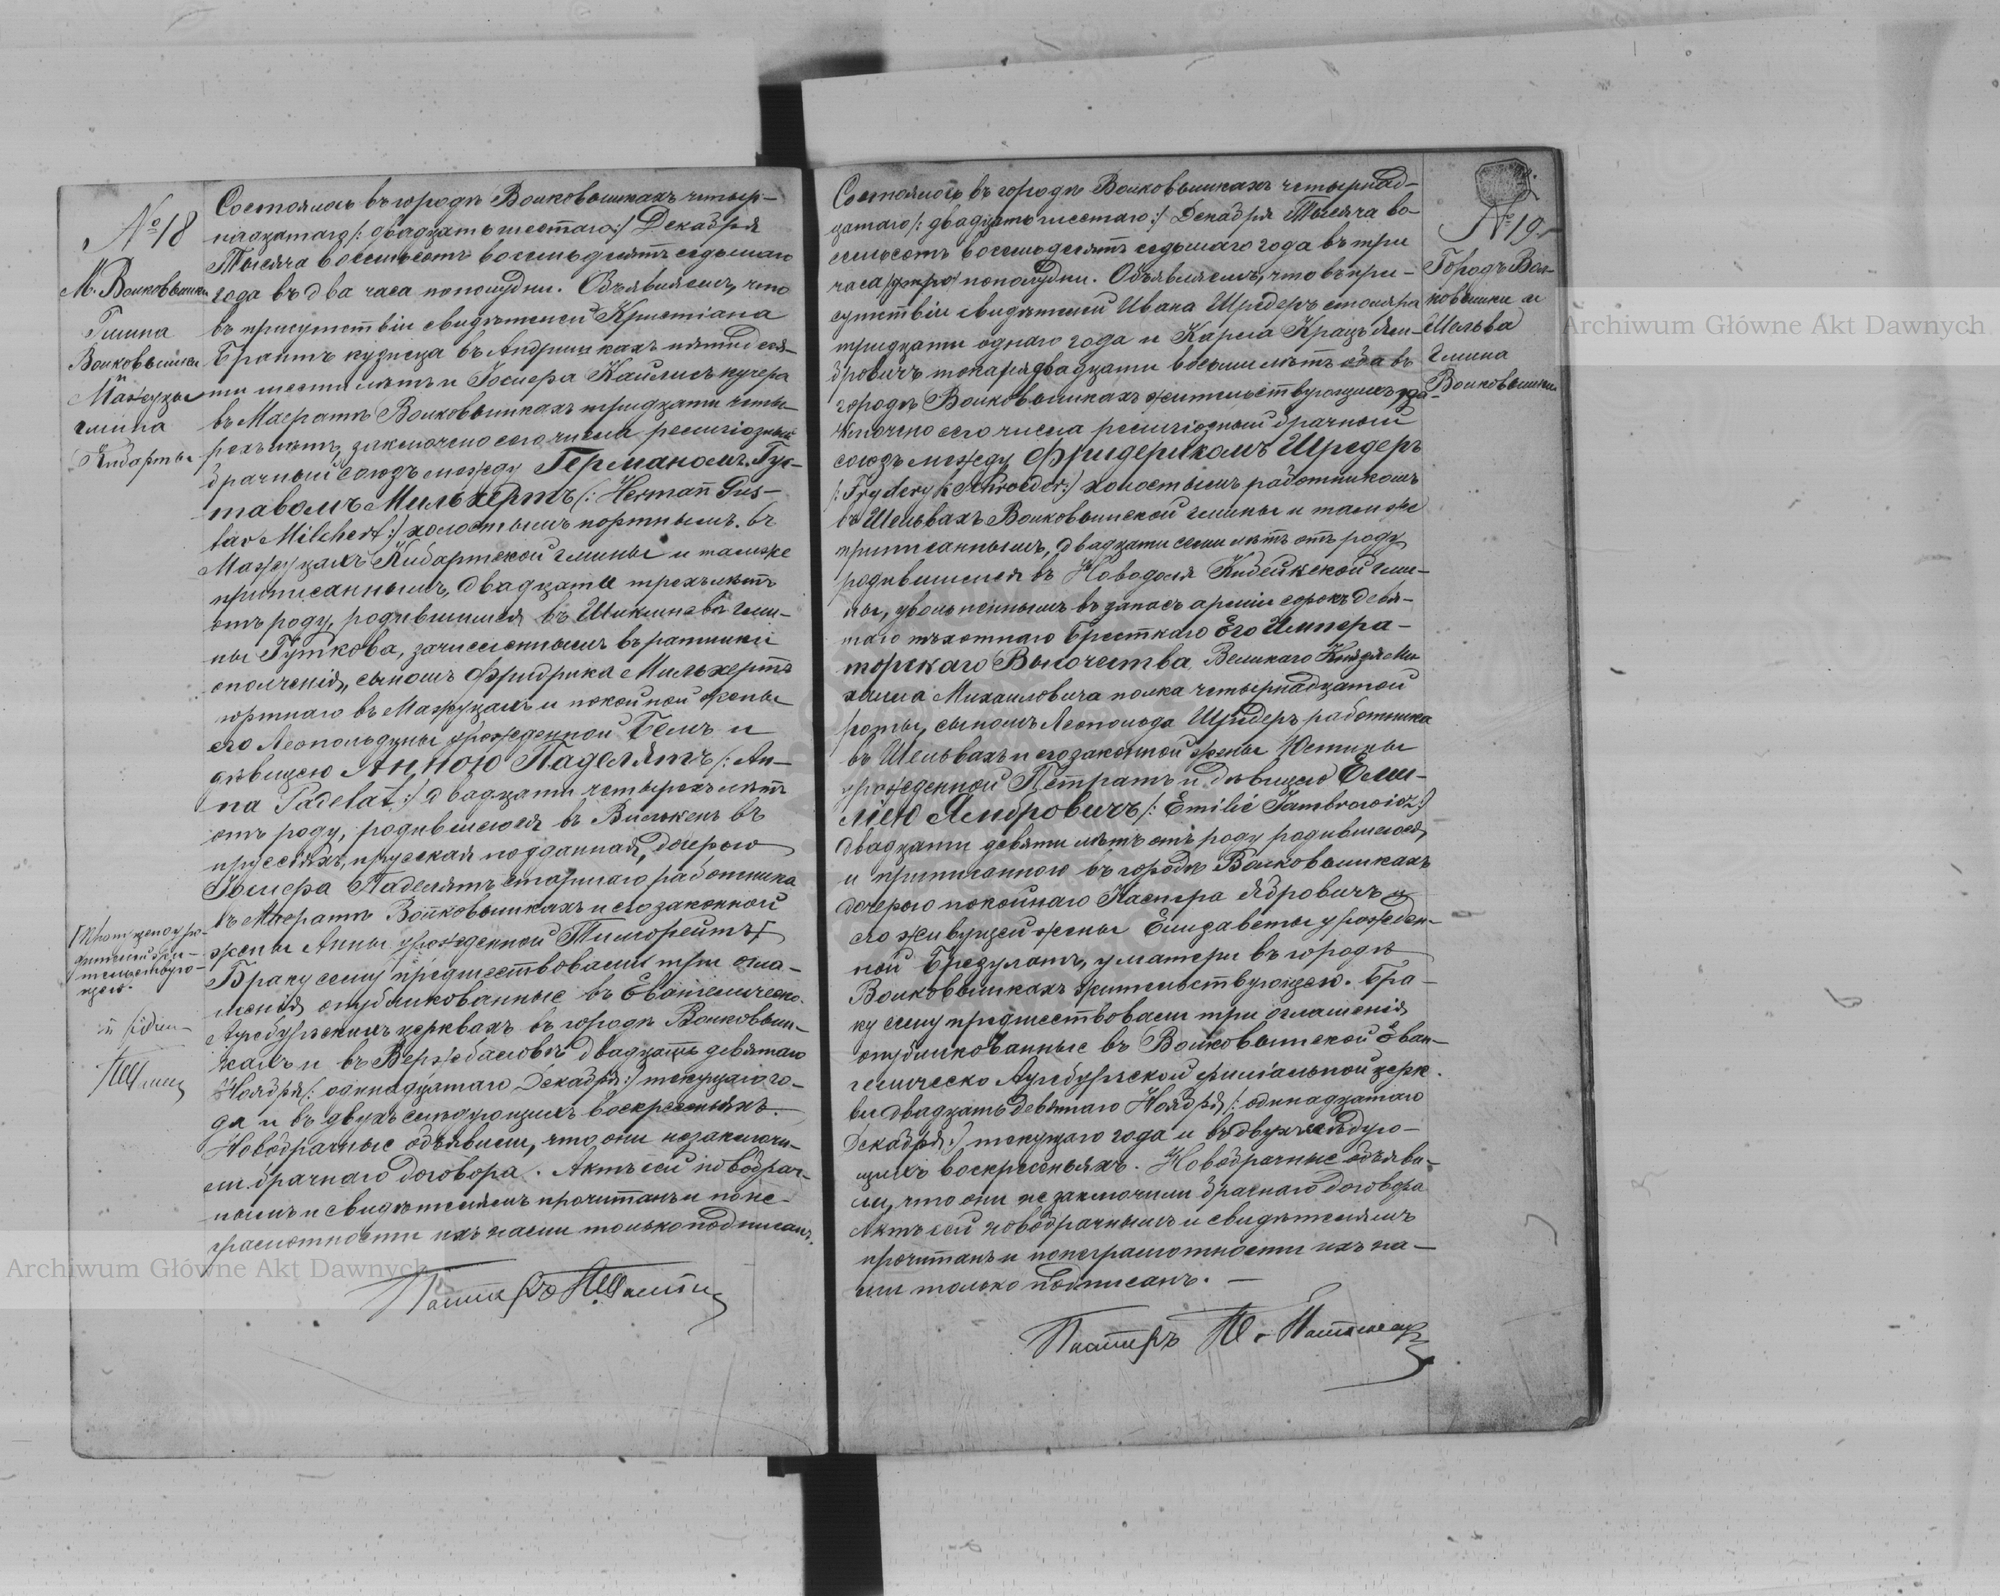 № 18
М. Волковышки
Гмина
Волковышки
Мажуцы
гмина
Кибарты
Состоялось въ городѣ Волковышкахъ четыр-
надцатаго /: двадцать шестаго :/ Декабря
Тысяча восемьсотъ восемьдесятъ седьмаго
года въ два часа пополудни. Объявляемъ, что
въ присутствіи свидѣтелей Христіана
Брантъ кузнеца въ Андришкахъ пятидеся-
ти шести лѣтъ и Госпера кучера
въ Маератѣ Волковышкахъ тридцати четы-
рехъ лѣтъ, заключено сего числа религіозный
брачный союзъ между Германомъ Гус-
тавомъ Мильхертъ /: Hermann Gus-
tav Milchert :/ холостымъ портнымъ въ
Мажуцахъ Кибартской гмины и тамже
приписаннымъ, двадцати трехъ лѣтъ
отъ роду, родившимся въ гми-
ны Гуткова, зачисленнымъ въ ратники
ополченія, сыномъ Фридрика Мильхертъ
портнаго въ Мажуцахъ и покойной жены
его Леопольдины урожденной Бемъ и
дѣвицею Анною Паделятъ /: An-
na Padelat :/ двадцати четырехъ лѣтъ
отъ роду, родившеюся въ Вилькенъ въ
пруссіяхъ, прусская подданная, дочерью
Паделятъ работника
въ Маератѣ Волковышкахъ и его законной
жены Анны урожденной
Браку сему предшествовали три огла-
шенія опубликованные въ Евангелическо-
Аугсбургскихъ церквахъ въ городѣ Волковыш-
кахъ и въ Вержболовѣ двадцать девятаго
Ноября /: одинадцатаго Декабря :/ текущаго го-
да и въ двухъ слѣдующихъ воскресеньяхъ.
Новобрачные объявили, что они незаключи-
ли брачнаго договора. Актъ сей новобрач-
нымъ и свидѣтелямъ прочитанъ и по не-
грамотности ихъ нами только подписанъ.
Пасторъ
№ 19.
Городъ Вол-
ковышки и
Шельва
Гмина
Волковышки
Состоялось въ городѣ Волковышкахъ четырнад-
цатаго /: двадцать шестаго :/ Декабря Тысяча во-
семьсотъ восемьдесятъ седьмаго года въ три
часа пополудни. Объявляемъ, что въ при-
сутствіи свидѣтелей Ивана Шредеръ столяра
тридцати однаго года и Карла
токаря двадцати восьми лѣтъ въ
городѣ Волковышкахъ жительствующихъ за-
ключено сего числа религіозный брачный
союзъ между Фридерикомъ Шредеръ
/: Fryderyk Schroeder :/ холостымъ работникомъ
въ Шельвахъ Волковышской гмины и тамже
приписаннымъ, двадцати семи лѣтъ отъ роду
родившимся въ Новодоля гми-
ны, уволеннымъ въ запасъ арміи сорокъ девя-
таго пѣхотнаго Брестскаго Его Импера-
торскаго Высочества Великаго Князя Ми-
хаила Михаиловича полка четырнадцатой
роты, сыномъ Леопольда Шредеръ работника
въ Шельвахъ и его законной жены Юстины
урожденной Петратъ и дѣвицею Еми-
ліею Ямбровичъ /: Emilie Jambrowicz :/
двадцати девяти лѣтъ отъ роду родившеюся
и приписанною въ городѣ Волковышкахъ
дочерью покойнаго Каспра Ябровичъ и
его живущей жены Елизаветы урожден-
ной Брезулатъ, у матери въ городѣ
Волковышкахъ жительствующею. Бра-
ку сему предшествовали три оглашенія
опубликованные въ Волковышской Еван-
гелическо Аугсбургской филіальной церк-
ви двадцать девятаго Ноября /: одинадцатаго
Декабря :/ текущаго года и въ двухъ слѣдую-
щихъ воскресеньяхъ. Новобрачные объяви-
ли, что они не заключили брачнаго договора
Актъ сей новобрачнымъ и свидѣтелямъ
прочитанъ и по неграмотности ихъ на-
ми только подписанъ. —
Пасторъ
Archiwum Główne Akt Dawnych
Archiwum Główne Akt Dawnych